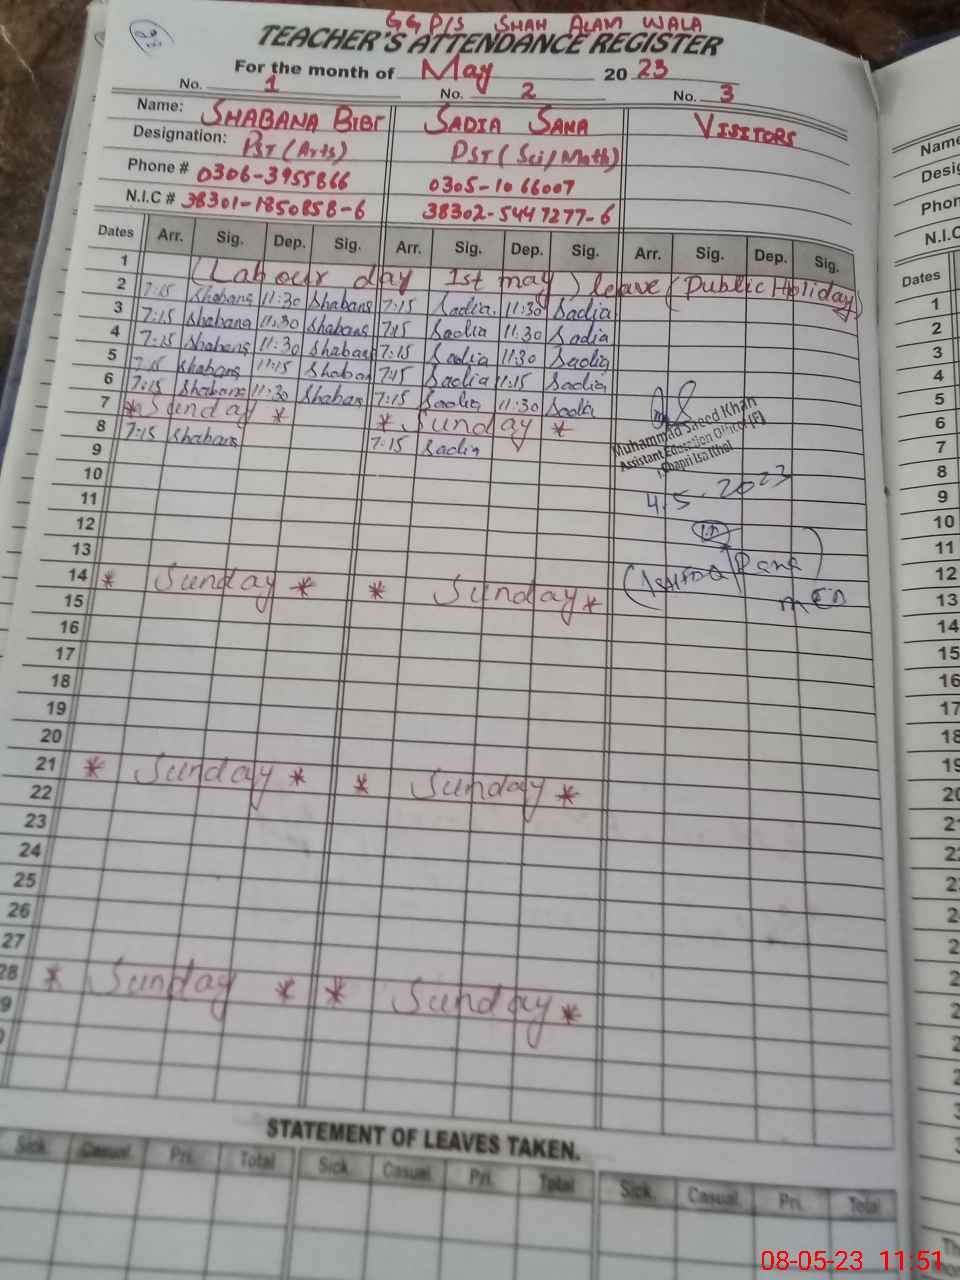 28
GGP/S SHAH ALAM WALA
TEACHER'S ATTENDANCE REGISTER
For the month of May 2023
No. 1 No. 2 No. 3
Name: SHABANA BIBI SADIA SANA VISITORS
Designation: PST (Arts) PST (Sci/Math)
Phone # 0306-3955866 0305-1066007
N.I.C # 38301-1850858-6 38302-5447277-6
Dates Arr. Sig. Dep. Sig. Arr. Sig. Dep. Sig. Arr. Sig. Dep. Sig.
1 (Labour day 1st may) leave (Public Holiday)
2 7:15 Shabana 11:30 Shabana 7:15 Sadia 11:30 Sadia
3 7:15 Shabana 11:30 Shabana 7:15 Sadia 11:30 Sadia
4 7:15 Shabana 11:30 Shabana 7:15 Sadia 11:30 Sadia
5 7:15 Shabana 11:15 Shabana 7:15 Sadia 11:15 Sadia
6 7:15 Shabana 11:30 Shabana 7:15 Sadia 11:30 Sadia
7 * Sunday * * Sunday *
8 7:15 Shabana 7:15 Sadia
Muhammad Saeed Khan
Assistant Education Officer (F)
4.5.2023
9
10
11
12
13
14 * Sunday * * Sunday *
15
16
17
18
19
20
21 * Sunday * * Sunday *
22
23
24
25
26
27
28 * Sunday * * Sunday *
9
STATEMENT OF LEAVES TAKEN.
Sick. Casual. Pri. Total Sick. Casual. Pri. Total Sick. Casual. Pri. Total
Name
Desig
Phon
N.I.C
Dates
1
2
3
4
5
6
7
8
9
10
11
12
13
14
15
16
17
18
19
20
08-05-23 11:51